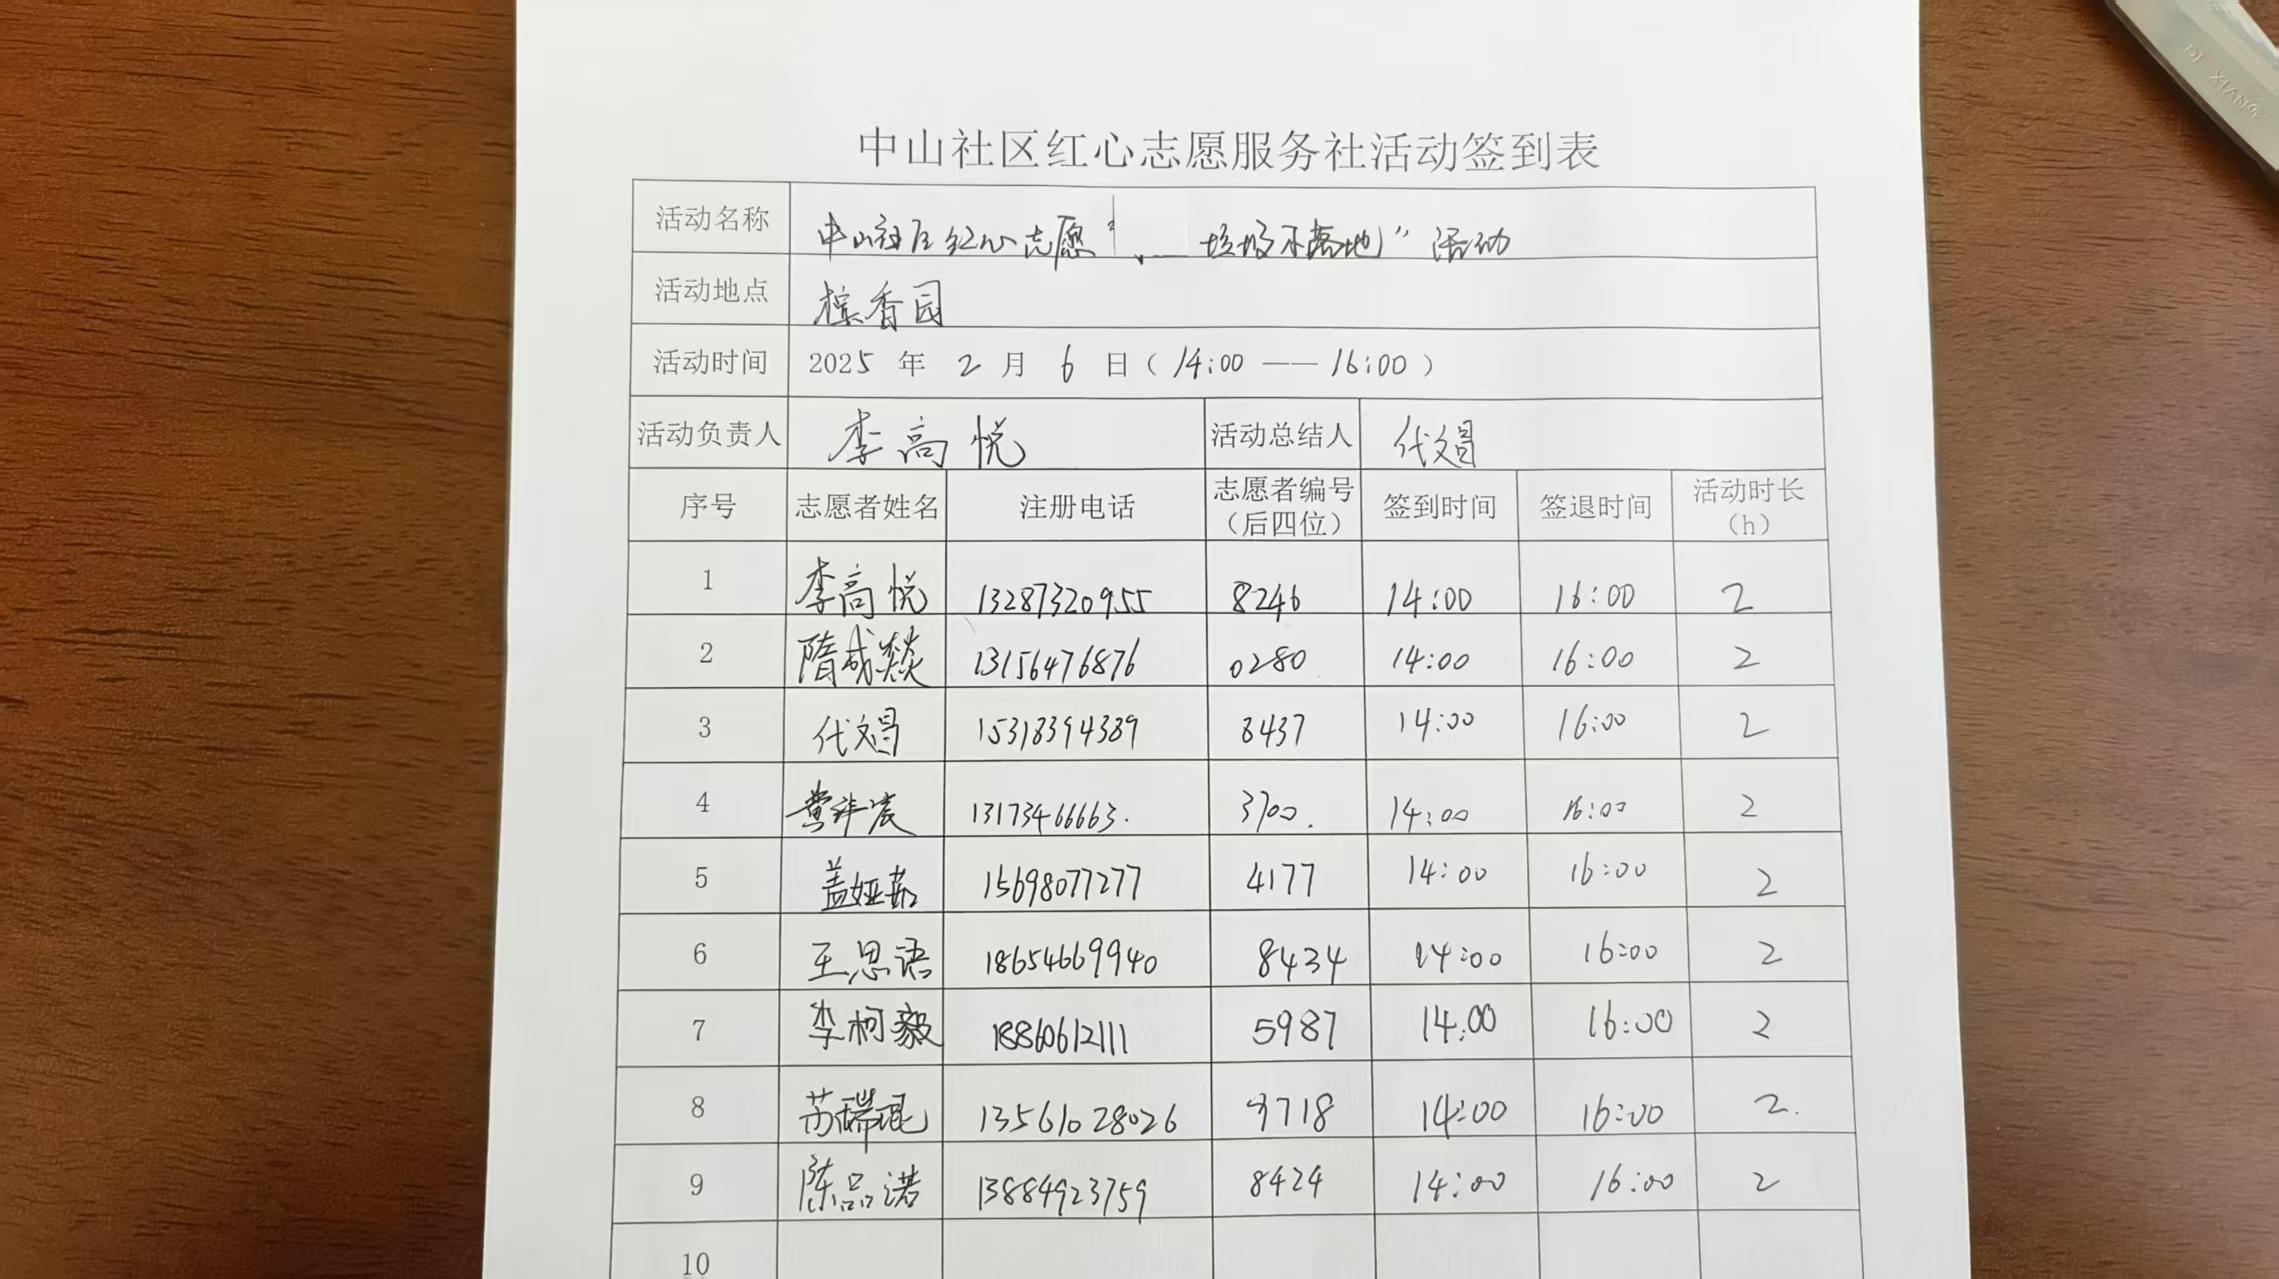 中山社区红心志愿服务社活动签到表
活动名称 中山社区红心志愿“ 垃圾不落地”活动
活动地点 槟香园
活动时间 2025 年 2 月 6 日（14:00 —— 16:00）
活动负责人 李高悦 活动总结人 代文昌
序号 志愿者姓名 注册电话 志愿者编号（后四位） 签到时间 签退时间 活动时长（h）
1 李高悦 13287320955 8246 14:00 16:00 2
2 隋成燚 13156476876 0280 14:00 16:00 2
3 代文昌 15318394389 8437 14:00 16:00 2
4 13173466663. 3700. 14:00 16:00 2
5 盖娅茹 15698077277 4177 14:00 16:00 2
6 王思语 18654669940 8434 14:00 16:00 2
7 李柯毅 18860612111 5987 14:00 16:00 2
8 苏瑞琨 13561028026 9718 14:00 16:00 2.
9 陈品诺 13884923759 8424 14:00 16:00 2
10